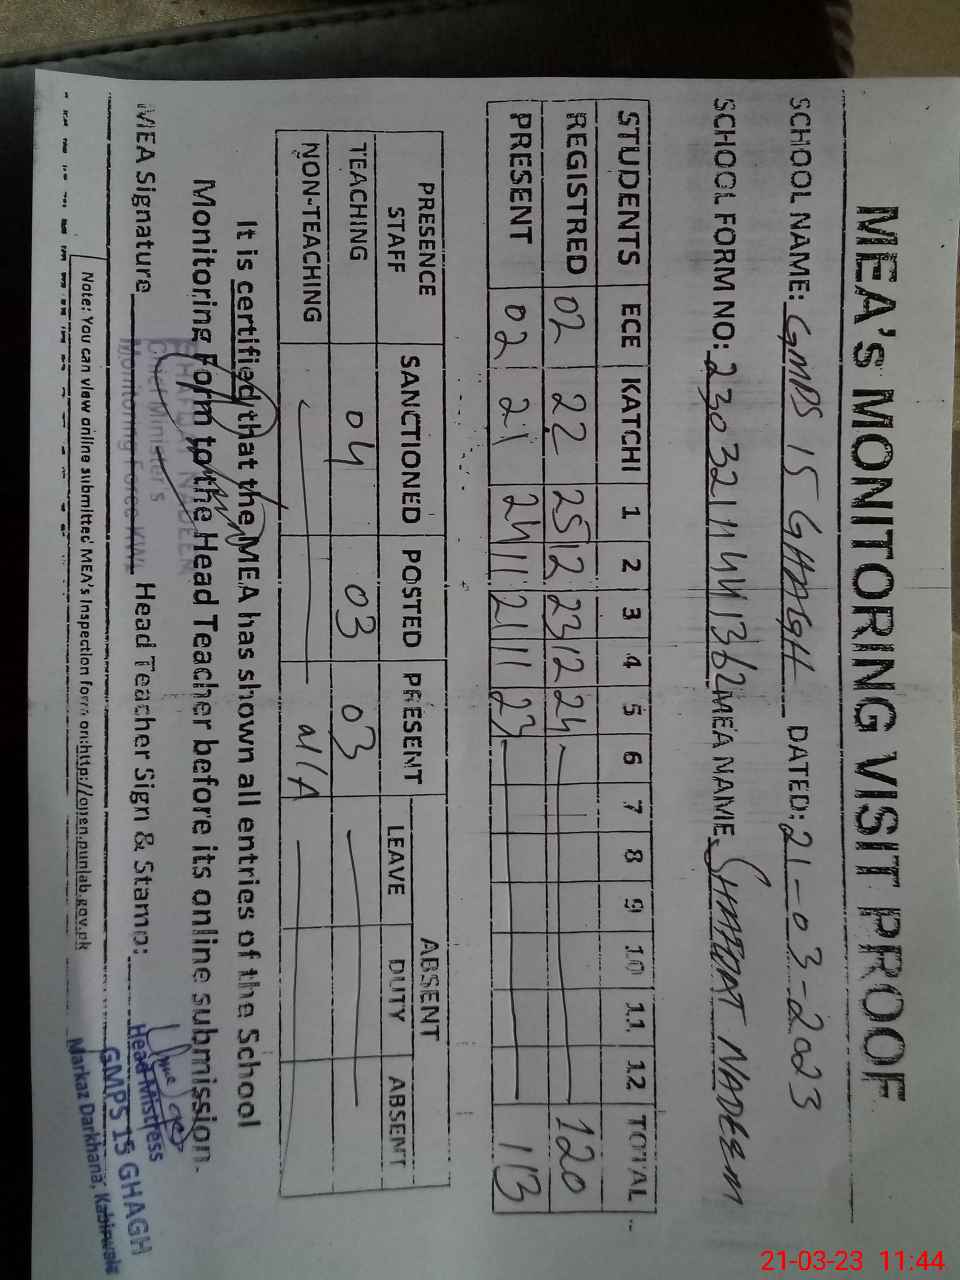 MEA's MONITORING VISIT PROOF
SCHOOL NAME: GMPS 15 GHAGH DATED: 21-03-2023
SCHOOL FORM NO: MEA NAME SHAFQAT NADEEM
STUDENTS ECE KATCHI 1 2 3 4 5 6 7 8 9 10 11 12 TOTAL
REGISTRED 02 22 25 12 23 12 24 120
PRESENT 02 21 24 11 21 11 23 113
PRESENCE STAFF SANCTIONED POSTED PRESENT ABSENT
LEAVE DUTY ABSENT
TEACHING 04 03 03
NON-TEACHING N/A
It is certified that the MEA has shown all entries of the School
Monitoring Form to the Head Teacher before its online submission.
SHAFQAT NADEEM
Chief Minister's
Monitoring Force KWL
MEA Signature Head Teacher Sign & Stamp:
Head Mistress
GMPS 15 GHAGH
Markaz Darkhana, Kabirwala
Note: You can view online submitted MEA's Inspection form on: http://open.punjab.gov.pk
21-03-23 11:44